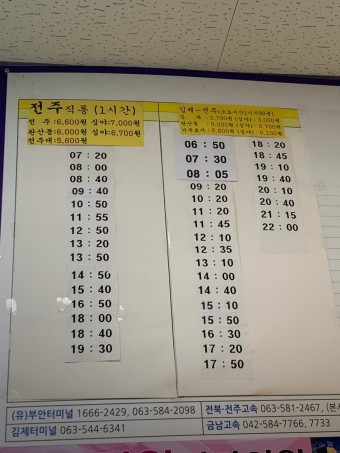 전주 직통 (1시간)
전 주:6,600원 심야:7,000원
완산동:6,000원 심야:6,700원
전주대:5,600원
07 : 20
08 : 00
08 : 40
09 : 40
10 : 50
11 : 55
12 : 50
13 : 20
13 : 50
14 : 50
15 : 40
16 : 50
18 : 00
18 : 40
19 : 30
김제-전주
06 : 50
07 : 30
08 : 05
09 : 20
10 : 20
11 : 20
11 : 45
12 : 10
12 : 35
13 : 10
14 : 00
14 : 40
15 : 10
15 : 50
16 : 30
17 : 20
17 : 50
18 : 20
18 : 45
19 : 10
19 : 40
20 : 10
20 : 40
21 : 15
22 : 00
(유)부안터미널 1666-2429, 063-584-2098
김제터미널 063-544-6341
전북·전주고속 063-581-2467, (본사
금남고속 042-584-7766, 7733